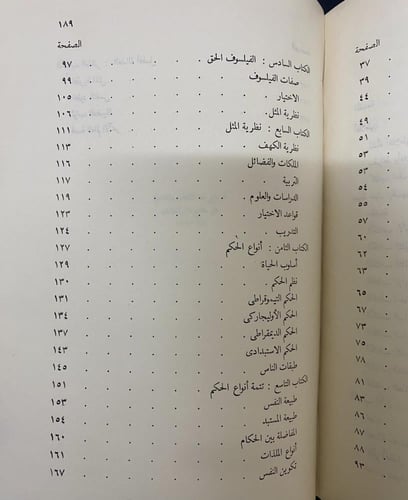 ١٨٩
الصفحة
الكتاب السادس : الفيلسوف الحق . . . . . ٩٧
صفات الفيلسوف . . . . . . ٩٩
الاختيار . . . . . . . ١٠٥
نظرية المثل . . . . . . . ١٠٦
الكتاب السابع : نظرية المثل . . . . . . ١١١
نظرية الكهف . . . . . . . ١١٣
الملكات والفضائل . . . . . . ١١٦
التربية . . . . . . . ١١٧
الدراسات والعلوم . . . . . . ١١٩
قواعد الاختيار . . . . . . ١٢٣
التدريب . . . . . . . ١٢٤
الكتاب الثامن : أنواع الحكم . . . . . . ١٢٧
أسلوب الحياة . . . . . . . ١٢٩
نظم الحكم . . . . . . . ١٣٠
الحكم التيموقراطى . . . . . . ١٣١
الحكم الأوليجاركى . . . . . . ١٣٤
الحكم الديمقراطى . . . . . . ١٣٧
الحكم الاستبدادى . . . . . . ١٤٣
طبقات الناس . . . . . . . ١٤٥
الكتاب التاسع : تتمة أنواع الحكم . . . . . ١٥١
طبيعة النفس . . . . . . . ١٥٣
طبيعة المستبد . . . . . . . ١٥٤
المفاضلة بين الحكام . . . . . . ١٦٠
أنواع الملذات . . . . . . . ١٦١
تكوين النفس . . . . . . . ١٦٧
الصفحة
٣٧
٣٩
٤٤
٤٩
٥١
٥٣
٥٣
٥٤
٥٥
٥٧
٦٠
٦٢
٦٣
٦٥
٦٧
٧٣
٧٥
٧٨
٨١
٨٣
٨٦
٨٧
٨٨
٩٣